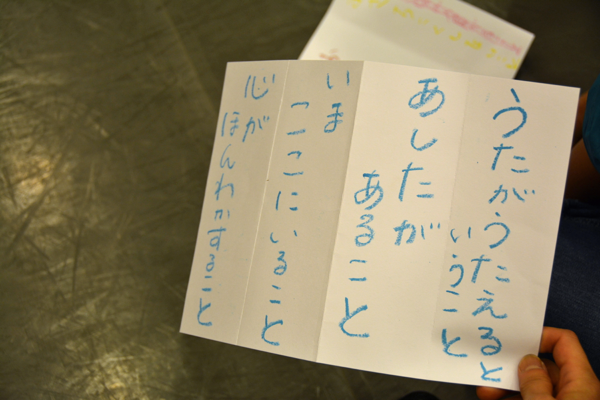 うたがうたえると
いうこと
あしたが
あること
いま
ここにいること
心が
ほんわかすること